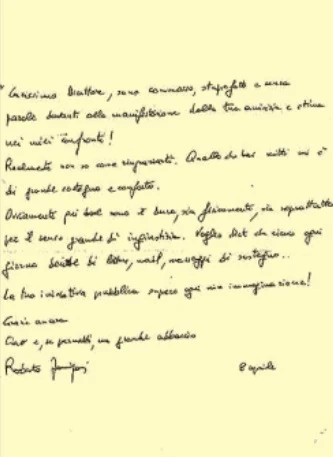 "Carissimo Direttore, sono commosso, stupefatto e senza
parole davanti alla manifestazione della tua amicizia e stima
nei miei confronti!
Realmente non so come ringraziarti. Quello che hai scritto mi è
di grande sostegno e conforto.
Ovviamente più qui sono è dura, sia fisicamente, sia soprattutto
per il senso grande di ingiustizia. Voglio dirti che ricevo ogni
giorno decine di lettere, mail, messaggi di sostegno..
La tua iniziativa pubblica supera ogni mia immaginazione!
Grazie ancora
Ciao e, se permetti, un grande abbraccio
Roberto 8 aprile